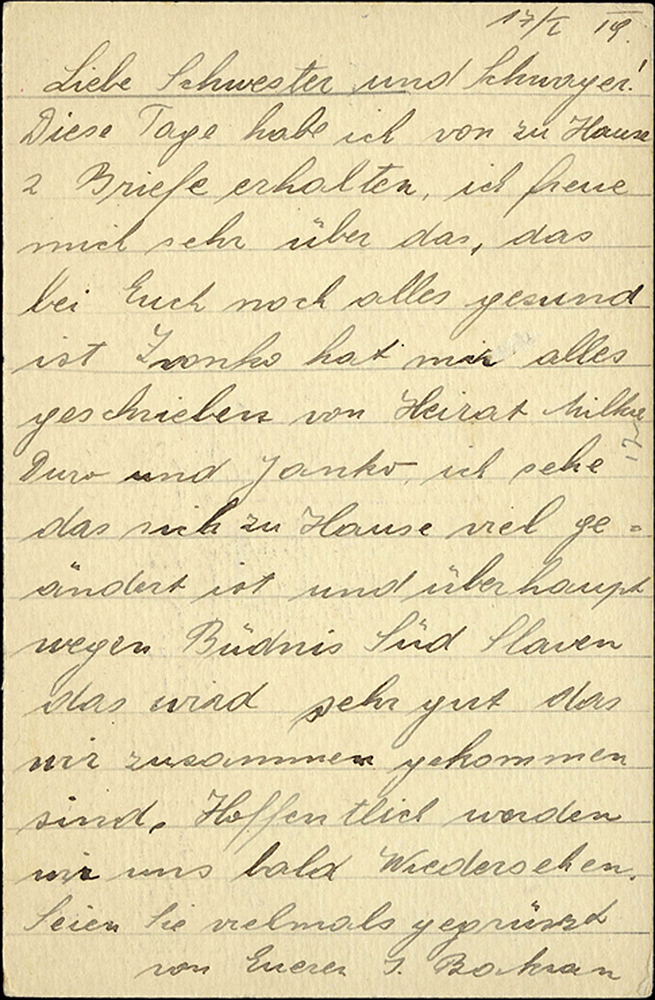 17/I 19.
Liebe Schwester und Schwager!
Diese Tage habe ich von zu Hause
2 Briefe erhalten, ich freue
mich sehr über das, das
bei Euch noch alles gesund
ist Ivanko hat mir alles
geschrieben von Heirat Milke
Duro und Janko, ich sehe
das sich zu Hause viel ge=
ändert ist und überhaupt
wegen Büdnis Süd Slaven
das wird sehr gut das
wir zusammen gekommen
sind. Hoffentlich werden
wir uns bald Wiedersehen.
Seien Sie vielmals gegrüsst
von Eueren J. Bakran